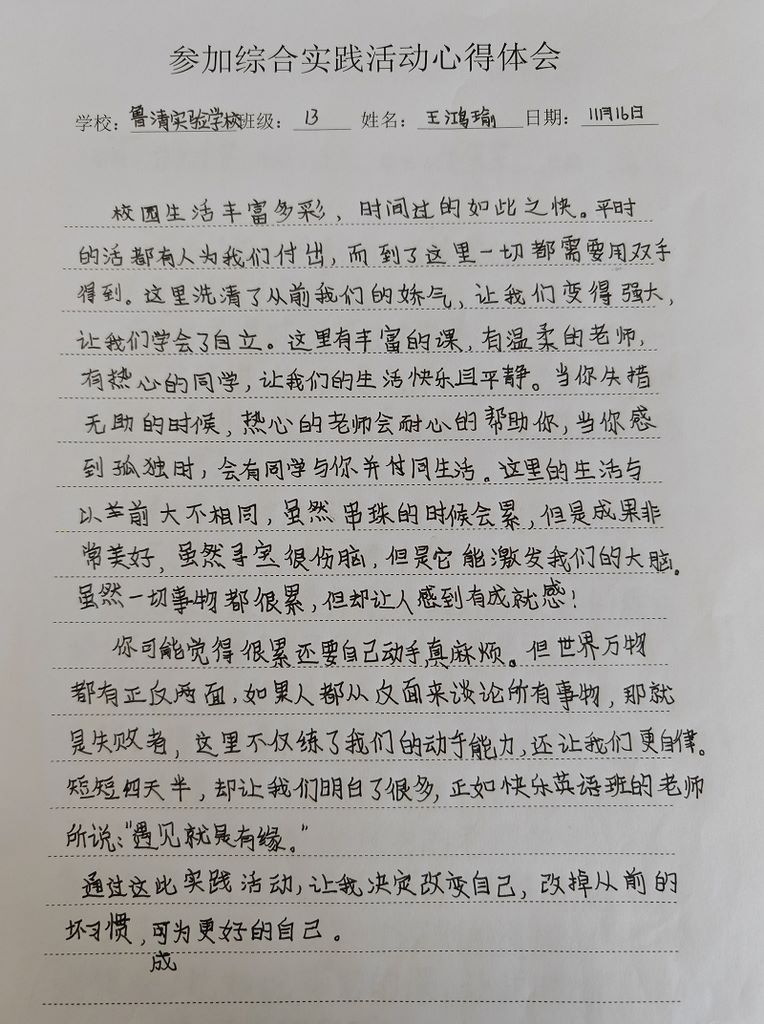 参加综合实践活动心得体会
学校：鲁清实验学校班级：13 姓名：王鸿瑜 日期：11月16日
校园生活丰富多彩，时间过的如此之快。平时
的活都有人为我们付出，而到了这里一切都需要用双手
得到。这里洗清了从前我们的娇气，让我们变得强大，
让我们学会了自立。这里有丰富的课，有温柔的老师，
有热心的同学，让我们的生活快乐且平静。当你失措
无助的时候，热心的老师会耐心的帮助你，当你感
到孤独时，会有同学与你并付同生活。这里的生活与
以前大不相同，虽然串珠的时候会累，但是成果非
常美好，虽然寻宝很伤脑，但是它能激发我们的大脑。
虽然一切事物都很累，但却让人感到有成就感！
你可能觉得很累还要自己动手真麻烦。但世界万物
都有正反两面，如果人都从反面来谈论所有事物，那就
是失败者，这里不仅练了我们的动手能力，还让我们更自律。
短短四天半，却让我们明白了很多，正如快乐英语班的老师
所说："遇见就是有缘。"
通过这此实践活动，让我决定改变自己，改掉从前的
坏习惯，可为更好的自己。
成